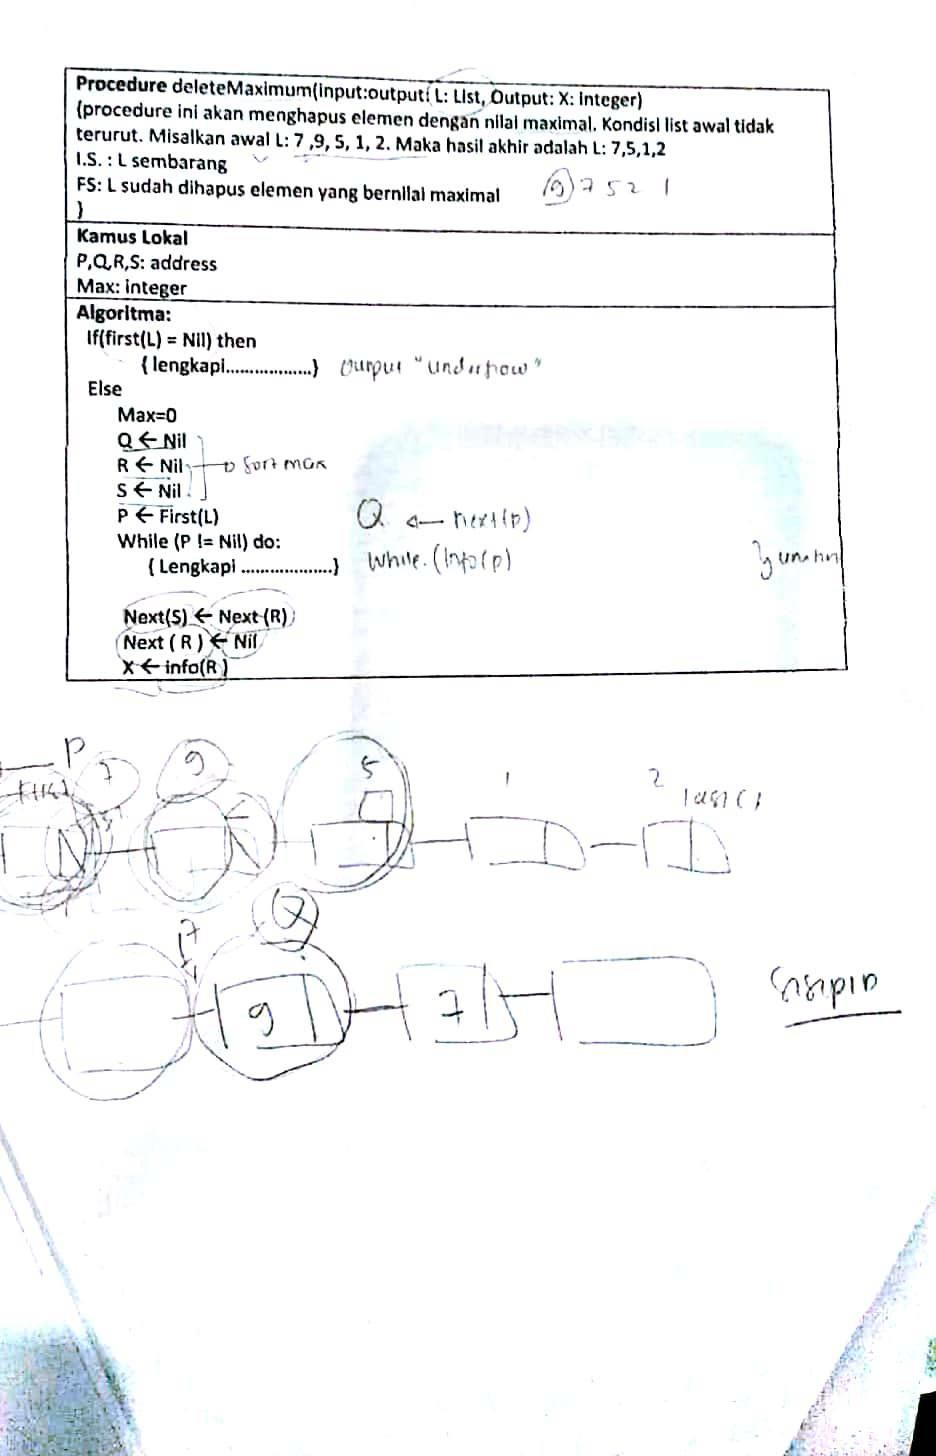 Procedure deleteMaximum(input:output( L: List, Output: X: Integer)
{procedure ini akan menghapus elemen dengan nilai maximal. Kondisi list awal tidak
terurut. Misalkan awal L: 7 ,9, 5, 1, 2. Maka hasil akhir adalah L: 7,5,1,2
I.S. : L sembarang
FS: L sudah dihapus elemen yang bernilai maximal 9 7 5 2 1
}
Kamus Lokal
P,Q,R,S: address
Max: integer
Algoritma:
If(first(L) = Nil) then
{ lengkapi..................} output "underflow"
Else
Max=0
Q ← Nil
R ← Nil → sort max
S ← Nil
P ← First(L) Q ← next(p)
While (P != Nil) do:
{ Lengkapi ...................} While (Info(p)
Next(S) ← Next (R)
Next ( R ) ← Nil
X ← info(R )
P
7 9 5 1 2
last()
9 7